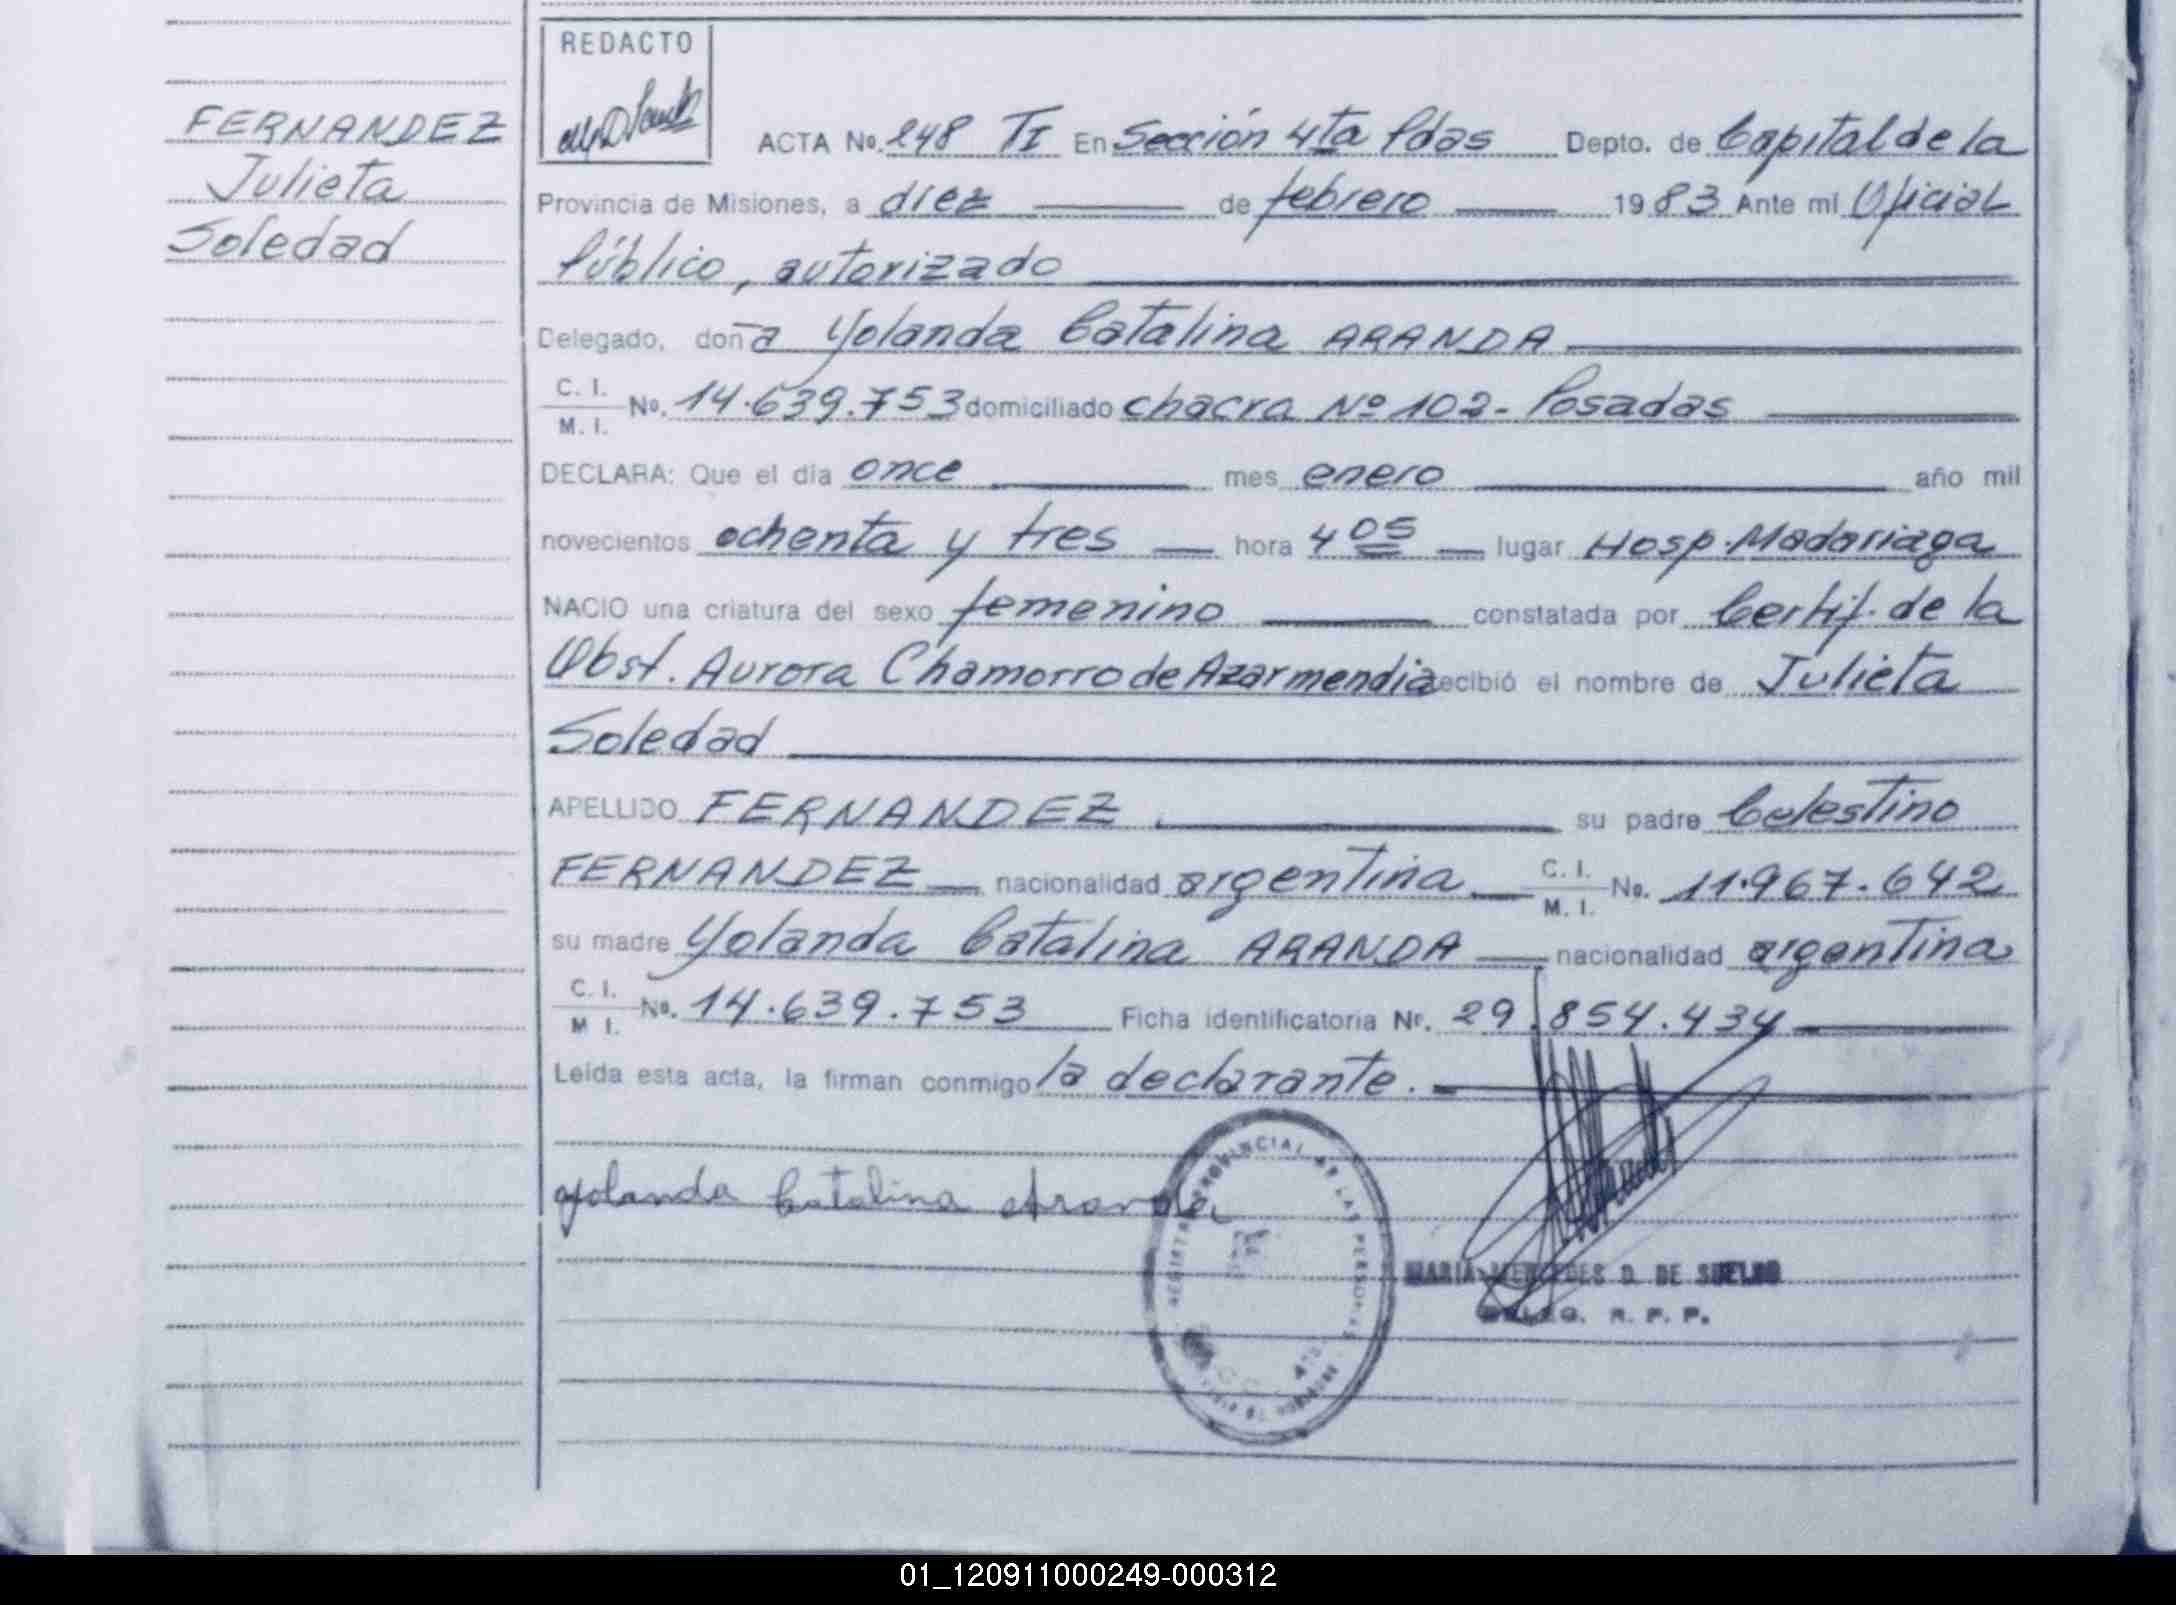 REDACTO
FERNANDEZ
Julieta
Soledad
ACTA No. 248 TI En Sección 4ta Pdas Depto. de Capital de la
Provincia de Misiones, a diez de febrero 1983 Ante mi Oficial
Público, autorizado
Delegado, doña Yolanda Catalina ARANDA
C. I.
M. I. No. 14.639.753 domiciliado chacra Nº 102 - Posadas
DECLARA: Que el día once mes enero año mil
novecientos ochenta y tres hora 4 05 lugar Hosp. Madariaga
NACIO una criatura del sexo femenino constatada por Certif. de la
Obst. Aurora Chamorro de Azarmendia recibió el nombre de Julieta
Soledad
APELLIDO FERNANDEZ su padre Celestino
FERNANDEZ nacionalidad argentina C. I. M. I. No. 11.967.642
su madre Yolanda Catalina ARANDA nacionalidad argentina
C. I.
M I. No. 14.639.753 Ficha identificatoria Nr. 29.854.434
Leída esta acta, la firman conmigo la declarante.
Yolanda Catalina Aranda
REGISTRO PROVINCIAL DE LAS PERSONAS
MARIA MERCEDES D. DE SUELDO
DELEG. R. P. P.
01_120911000249-000312